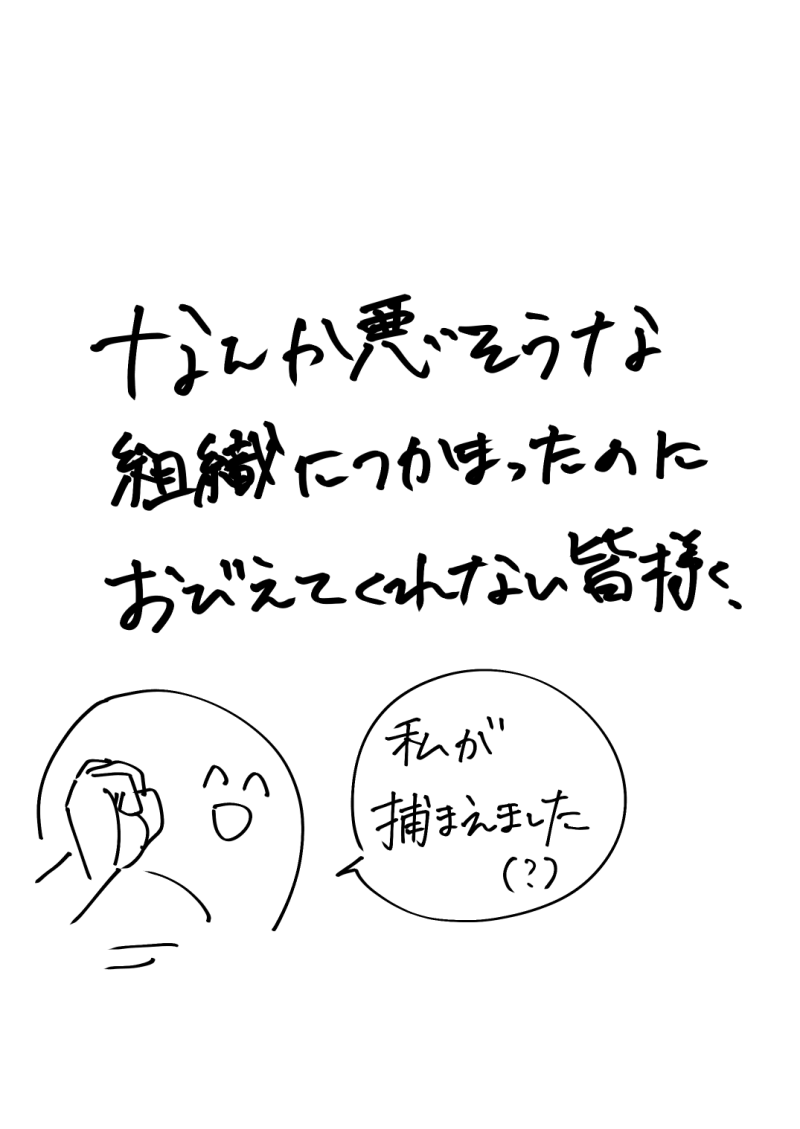 なんか悪そうな
組織につかまったのに
おびえてくれない皆様く、
私が
捕まえました
(?)